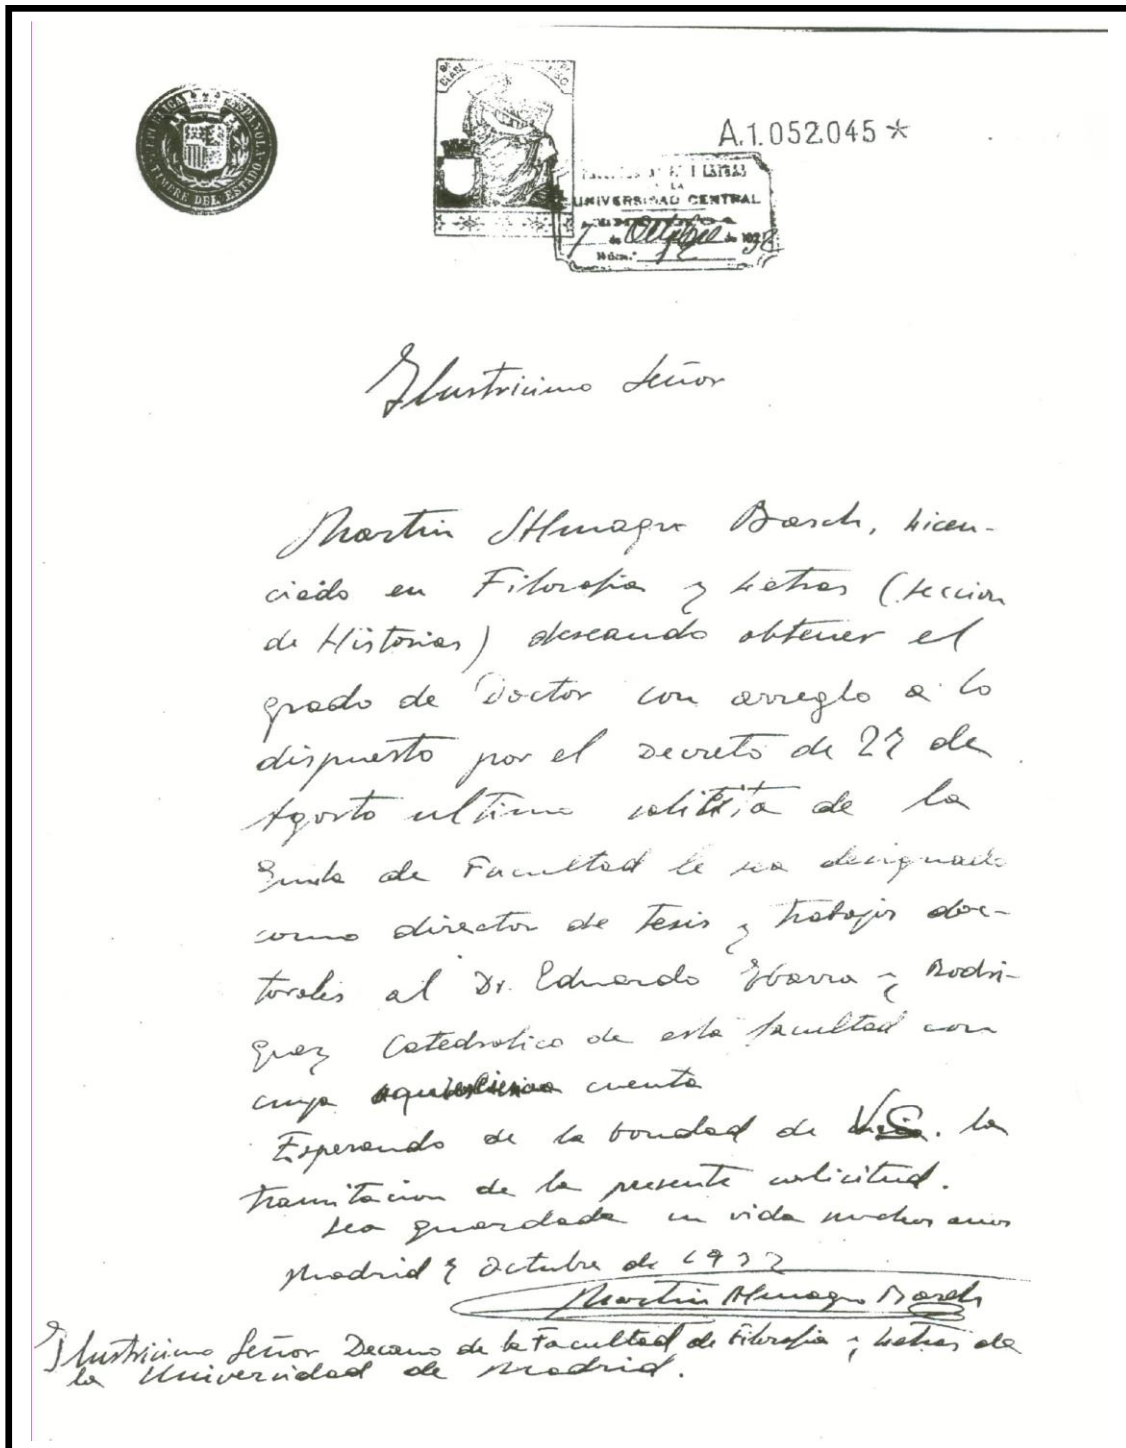 REPUBLICA ESPAÑOLA
TIMBRE DEL ESTADO
CLASE
A.1.052.045 *
LA
UNIVERSIDAD CENTRAL
7 de Octubre de 193
Núm.° 12
Ilustricimo Señor
Martin Almagro Basch, Licen-
ciado en Filosofia y Letras (Seccion
de Historias) deseando obtener el
grado de Doctor con arreglo a lo
dispuesto por el Decreto de 27 de
Agosto ultimo solicita de la
Junta de Facultad le sea designado
como director de Tesis y trabajos doc-
torales al Dr. Eduardo Ybarra y Rodri-
guez Catedratico de esta facultad con
cuya cuenta
Esperando de la bondad de V.S. la
tramitacion de la presente solicitud.
Sea guardada su vida muchos años
Madrid 7 Octubre de 1932
Martin Almagro Basch
Ilustricimo Señor Decano de la Facultad de Filosofia y Letras de
la Universidad de Madrid.